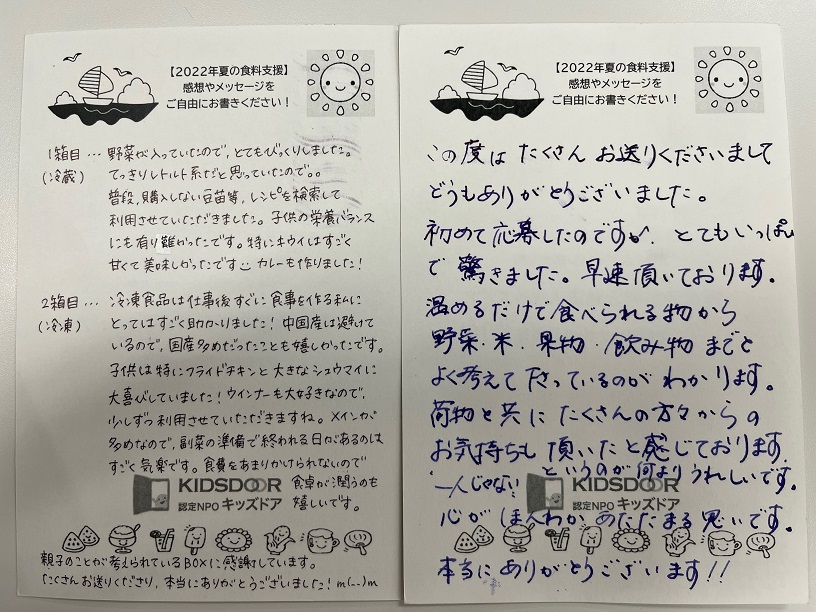 【2022年夏の食料支援】
感想やメッセージを
ご自由にお書きください！
1箱目… 野菜が入っていたので、とてもびっくりしました。
(冷蔵) てっきりレトルト系だと思っていたので。。
普段、購入しない豆苗等、レシピを検索して
利用させていただきました。子供の栄養バランス
にも有り難かったです。特にキウイはすごく
甘くて美味しかったです カレーも作りました！
2箱目… 冷凍食品は仕事後すぐに食事を作る私に
(冷凍) とってはすごく助かりました！中国産は避けて
いるので、国産多めだったことも嬉しかったです。
子供は特にフライドチキンと大きなシュウマイに
大喜びしていました！ウインナーも大好きなので、
少しずつ利用させていただきますね。メインが
多めなので、副菜の準備で終われる日があるのは
すごく気楽です。食費をあまりかけられないので
食卓が潤うのも
嬉しいです。
KIDSDOOR
認定NPO キッズドア
親子のことが考えられているBOXに感謝しています。
たくさんお送りくださり、本当にありがとうございました！m(_ _)m
【2022年夏の食料支援】
感想やメッセージを
ご自由にお書きください！
この度は たくさん お送りくださいまして
どうもありがとうございました。
初めて応募したのですが、とてもいっぱい
で 驚きました。早速頂いております。
温めるだけで食べられる物から
野菜・米・果物・飲み物 までと
よく考えて下さっているのが わかります。
荷物と共に たくさんの方々からの
お気持ちも 頂いたと感じております
一人じゃない というのが何より うれしいです。
KIDSDOOR
認定NPO キッズドア
心が ほんわか あたたまる 思いです。
本当に ありがとうございます!!